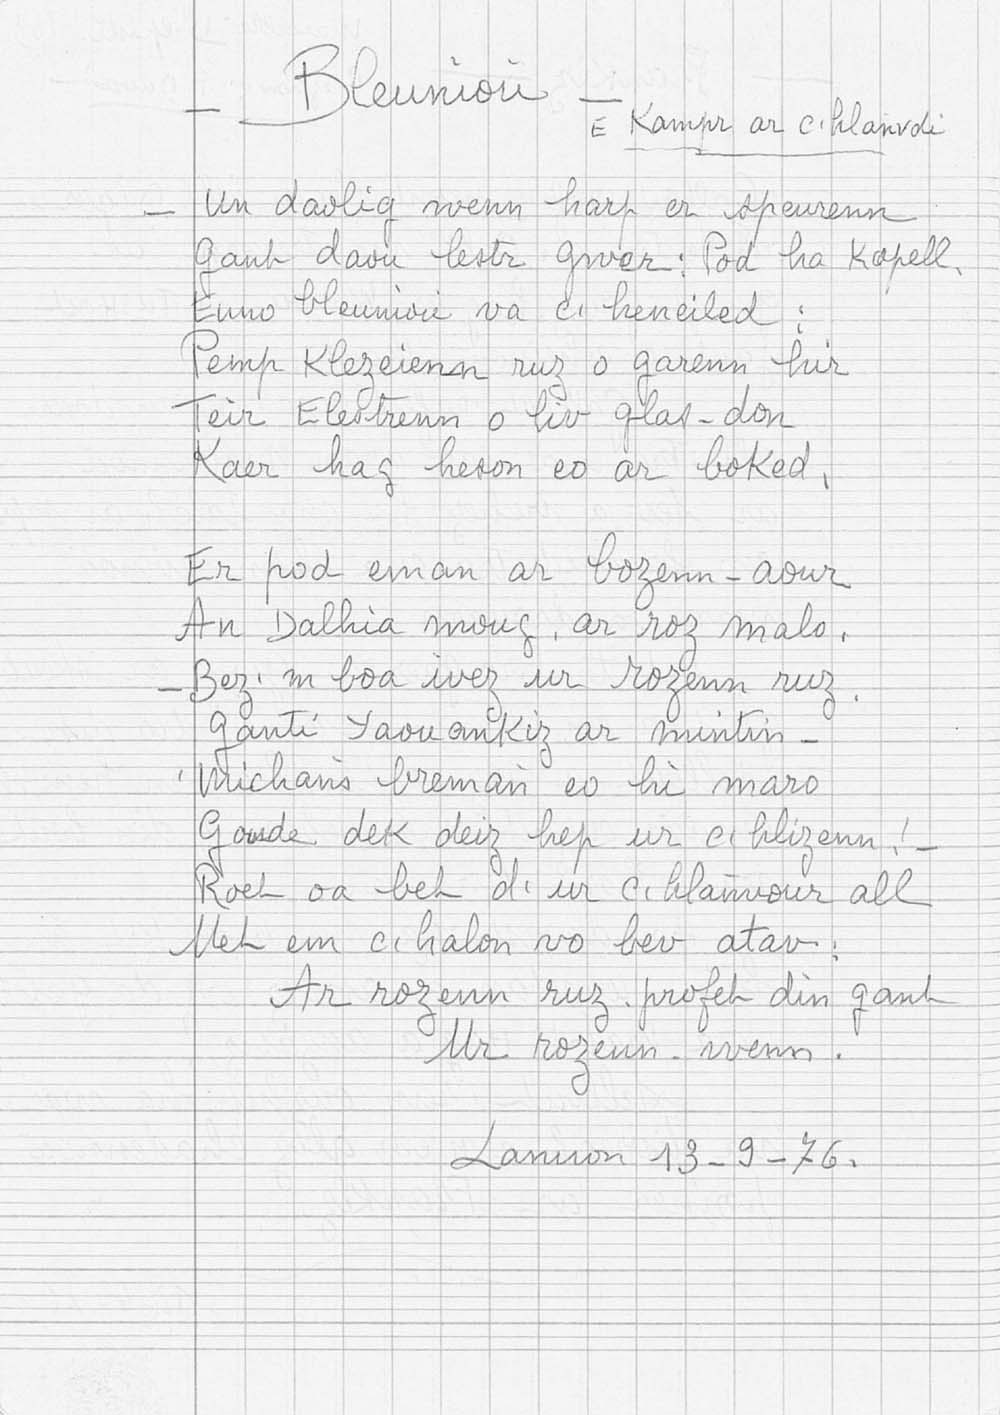 _ Bleunioù _
E Kampr ar c'hlañvdi
_ Un daolig wenn harp er speurenn
Gant daou lestr gwer: Pod ha Kopell.
Enno bleunioù va c'heneiled :
Pemp Klezeienn ruz o garenn hir
Teir Elestrenn o liv glas-don
Kaer hag heson eo ar boked.
Er pod emañ ar bozenn-aour
An Dalhia moug, ar roz malo.
_ Bez' m boa ivez ur rozenn ruz.
Ganti Yaouankiz ar mintin _
'Michañs bremañ eo hi maro
Goude dek deiz hep ur c'hlizenn ! _
Roet oa bet d' ur c'hlañvour all
Met em c'halon vo bev atav :
Ar rozenn ruz profet din gant
Ur rozenn-wenn.
Lannion 13-9-76.